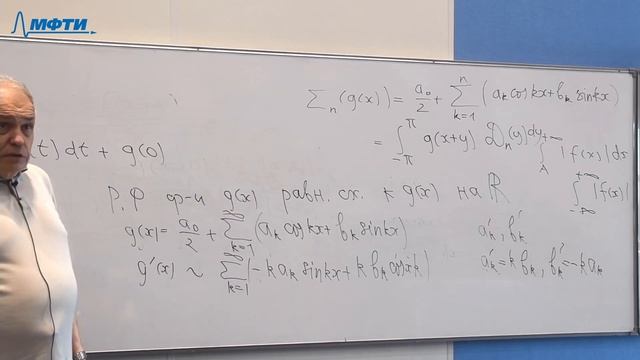 МФТИ
Σₙ(g(x)) = a₀/2 + ∑ₖ₌₁ⁿ (aₖ cos kx + bₖ sin kx)
= ∫_{-π}^{π} g(x+y) 𝒟ₙ(y) dy
∫_A^{+∞} |f(x)| dx
(t) dt + g(0)
∫_{-∞}^{+∞} |f(x)|
Р.Ф ф-и g(x) равн. сх. к g(x) на ℝ
g(x) = a₀/2 + ∑ₖ₌₁^∞ (aₖ cos kx + bₖ sin kx) a'ₖ, b'ₖ
g'(x) ~ ∑ₖ₌₁^∞ (-k aₖ sin kx + k bₖ cos xk) a'ₖ = k bₖ, b'ₖ = -k aₖ